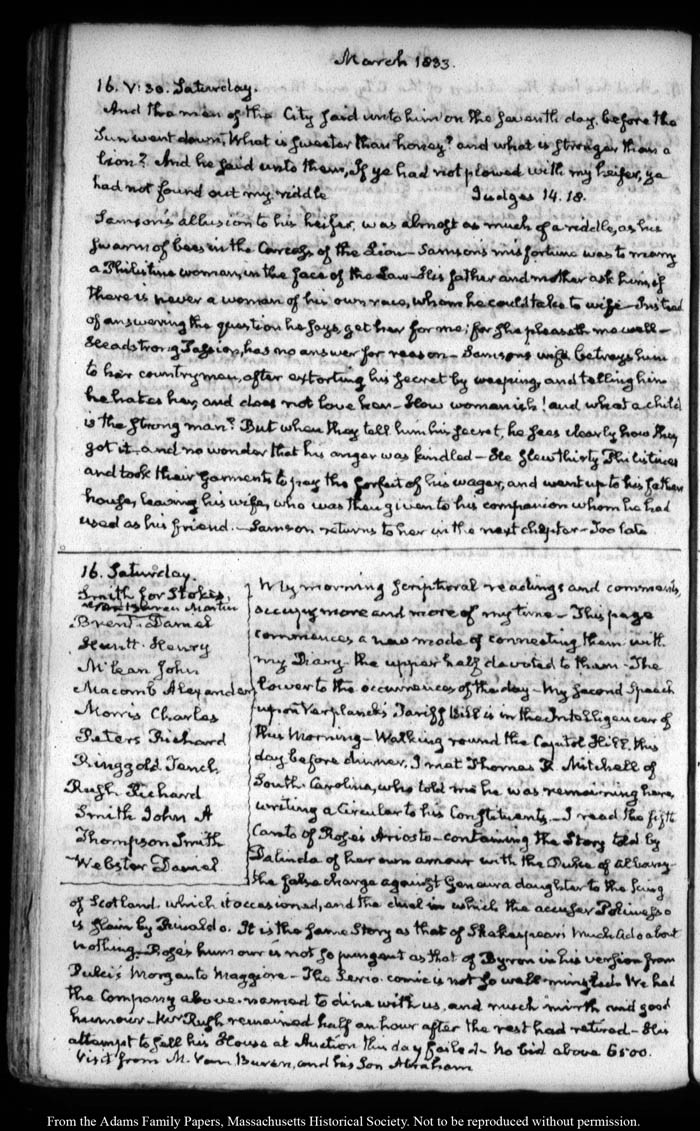 March 1833.
16. V: 30. Saturday.
And the men of the City said unto him on the seventh day, before the
Sun went down, What is sweeter than honey? and what is stronger than a
lion? And he said unto them, If ye had not plowed with my heifer, ye
had not found out my riddle Judges 14. 18.
Samson's allusion to his heifer, was almost as much of a riddle, as his
swarm of bees in the Carcass of the Lion - Samson's misfortune was to marry
a Philistine woman, in the face of the Law - His father and mother ask him, if
there is never a woman of his own race, whom he could take to wife - Instead
of answering the question he says, get her for me; for she pleaseth me well -
Headstrong Passion, has no answer for reason - Samsons wife betrays him
to her countrymen, after extorting his secret by weeping, and telling him
he hates her, and does not love her - How womanish! and what a child
is the strong man? But when they tell him his secret, he sees clearly how they
got it, and no wonder that his anger was kindled - He slew thirty Philistines
and took their Garments to pay the forfeit of his wager, and went up to his father's
house, leaving his wife, who was then given to his companion whom he had
used as his friend. - Samson returns to her in the next chapter - Too late
16. Saturday.
Smith for Stokes,
Van Buren Martin
Brent. Daniel
Huntt. Henry
McLean John
Macomb Alexander
Morris Charles
Peters Richard
Ringgold Tench
Rush Richard
Smith John A
Thompson Smith
Webster Daniel
My morning scriptural readings and comments,
occupy more and more of my time - This page
commences a new mode of connecting them with
my Diary - the upper half devoted to them - The
lower to the occurrences of the day - My second Speech
upon Verplanck's Tariff Bill is in the Intelligencer of
this Morning - Walking round the Capitol Hill, this
day before dinner, I met Thomas R. Mitchell of
South Carolina, who told me he was remaining here,
writing a Circular to his Constituents. - I read the fifth
Canto of Rose's Ariosto - containing the Story told by
Dalinda of her own amour with the Duke of Albany
the false charge against Geneura daughter to the King
of Scotland, which it occasioned, and the duel in which the accuser Polinesso
is slain by Rinaldo. It is the same Story as that of Shakespear's Much Ado about
nothing. Rose's humour is not so pungent as that of Byron in his version from
Pulci's Morgante Maggiore - The serio-comic is not so well mingled. We had
the Company above-named to dine with us, and much mirth and good
humour - Mr Rush remained half an hour after the rest had retired - His
attempt to sell his House at Auction this day failed - no bid above 6500.
Visit from M. Van Buren, and his Son Abraham
From the Adams Family Papers, Massachusetts Historical Society. Not to be reproduced without permission.